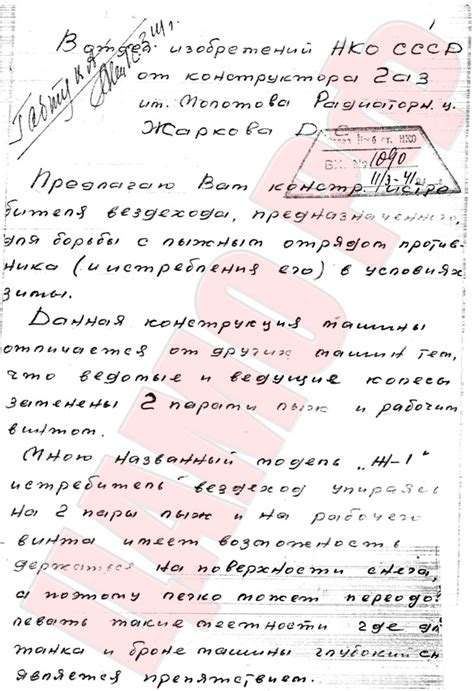 1
В отдел изобретений НКО СССР
от конструктора ГАЗ
им. Молотова Радиаторн. ц.
Жаркова Д. С.
ВХ. № 1090
11/3-41
Предлагаю Вам констр. истре
бителя вездехода, предназначенного,
для борьбы с лыжным отрядом против-
ника (и истребления его) в условиях
зимы.
Данная конструкция машины
отличается от других машин тем,
что ведомые и ведущие колеса
заменены 2 парами лыж и рабочим
винтом.
Мною названный модель „Ж-1"
истребитель вездеход упираясь
на 2 пары лыж и на рабочего
винта имеет возможность
держаться на поверхности снега,
а поэтому легко может переодо-
левать такие местности где для
танка и броне машины глубокий сн
является препятствием.
ЦАМО РФ